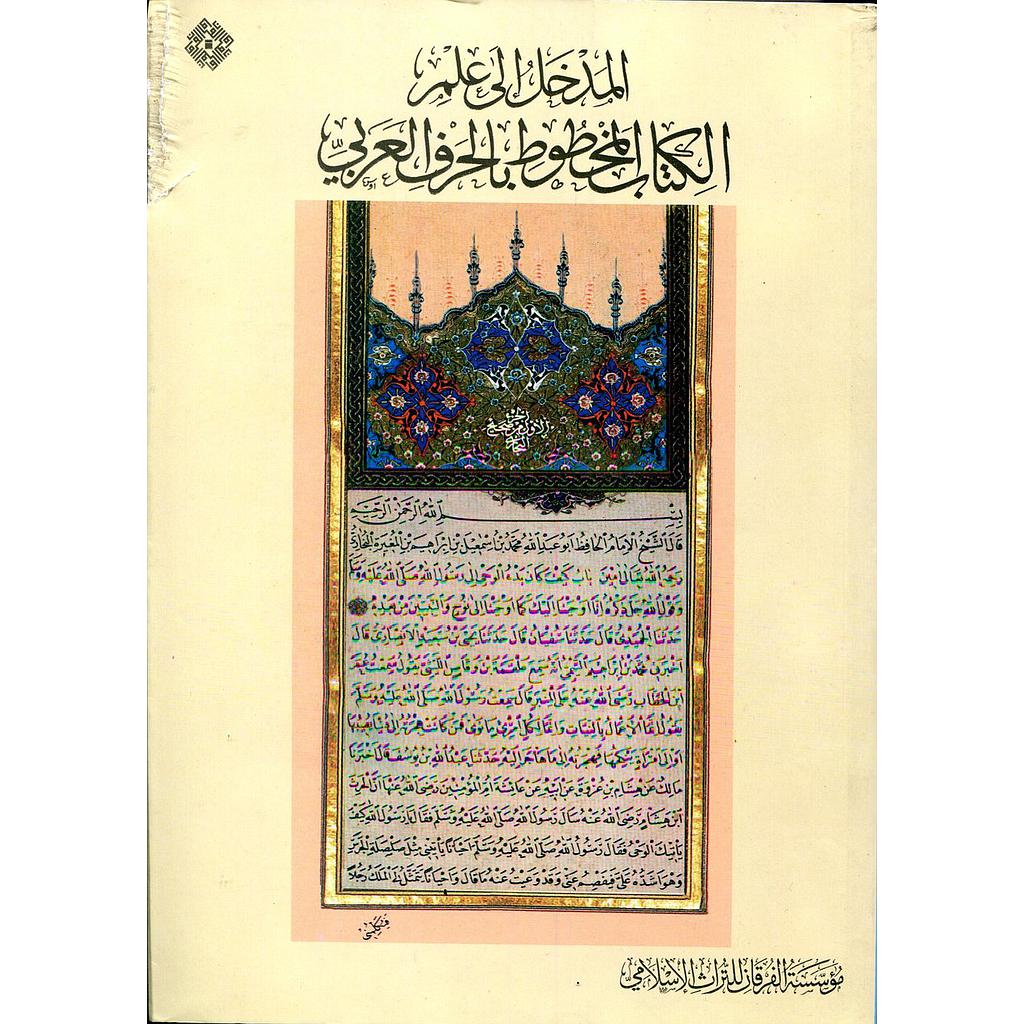 المدخل إلى علم
الكتاب المخطوط بالحرف العربي
الجزء
الاول من صحيح
البخاري
بسم الله الرحمن الرحيم
قال الشيخ الامام الحافظ ابو عبد الله محمد بن اسمعيل بن ابراهيم بن المغيرة البخاري
رحمه الله تعالى امين باب كيف كان بدء الوحي الى رسول الله صلى الله عليه وسلم
وقول الله جل ذكره انا اوحينا اليك كما اوحينا الى نوح والنبيين من بعده
حدثنا الحميدي قال حدثنا سفيان قال حدثنا يحيى بن سعيد الانصاري قال
اخبرني محمد بن ابراهيم التيمي انه سمع علقمة بن وقاص الليثي يقول سمعت عمر
ابن الخطاب رضي الله عنه على المنبر قال سمعت رسول الله صلى الله عليه وسلم
يقول انما الاعمال بالنيات وانما لكل امرئ ما نوى فمن كانت هجرته الى دنيا يصيبها
او الى امراة ينكحها فهجرته الى ما هاجر اليه حدثنا عبد الله بن يوسف قال اخبرنا
مالك عن هشام بن عروة عن ابيه عن عائشة ام المؤمنين رضي الله عنها ان الحرث
ابن هشام رضي الله عنه سال رسول الله صلى الله عليه وسلم فقال يا رسول الله كيف
ياتيك الوحي فقال رسول الله صلى الله عليه وسلم احيانا ياتيني مثل صلصلة الجرس
وهو اشده علي فيفصم عني وقد وعيت عنه ما قال واحيانا يتمثل لي الملك رجلا
مؤسسة الفرقان للتراث الإسلامي